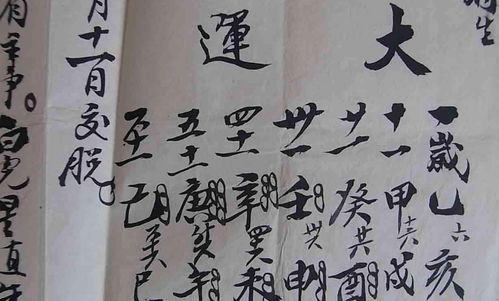 生
大運
一歲乙六亥
十一甲十六戌
廿一癸廿六酉
卅一壬卅六申
四十一辛未
五十一庚午
己巳
月十一日交脱
事。白虎星直